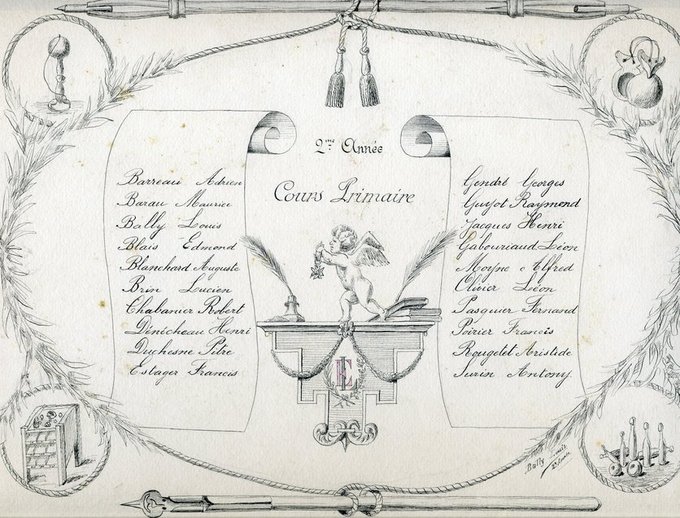 2me Année
Cours Primaire
Barreau Adrien
Barau Maurice
Bally Louis
Blais Edmond
Blanchard Auguste
Brin Lucien
Chabanier Robert
Dénicheau Henri
Duchesne Pitre
Estager Francis
Gendre Georges
Guyot Raymond
Jacques Henri
Gabouriaud Léon
Moyne Alfred
Olivier Léon
Pasquier Fernand
Poirier Francis
Rougelet Aristide
Surin Antony
LE
Bally